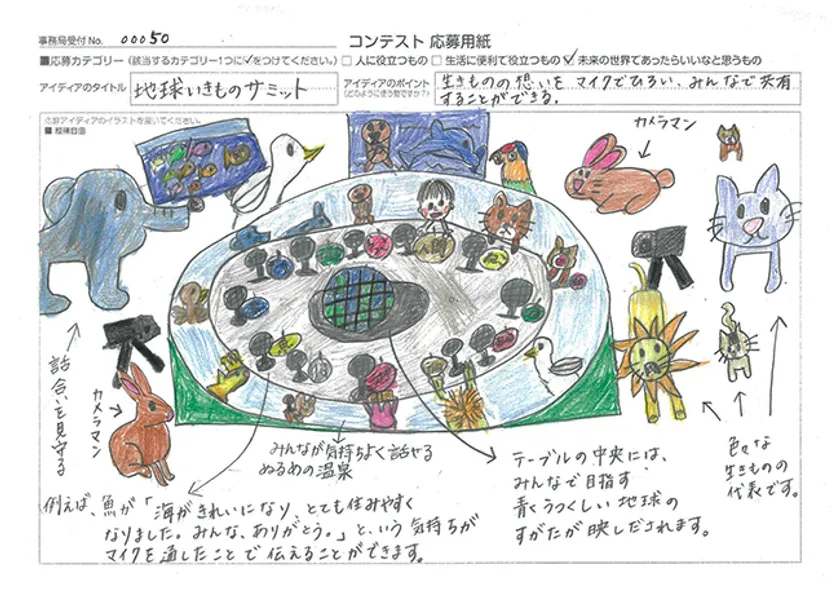 事務局受付 No. 00050
コンテスト 応募用紙
■応募カテゴリー (該当するカテゴリー1つに✓をつけてください。) □ 人に役立つもの □ 生活に便利で役立つもの ✓ 未来の世界であったらいいなと思うもの
アイディアのタイトル 地球いきものサミット
アイディアのポイント
(どのように使う物ですか?)
生きものの想いを マイクでひろい、みんなで共有
することができる。
応募アイディアのイラストを描いてください。
カメラマン
話合いを見守る
カメラマン
人間
みんなが気持ちよく話せる
ぬるめの温泉
テーブルの中央には、
みんなで目指す
青くうつくしい地球の
すがたが映しだされます。
色々な
生きものの
代表です。
例えば、魚が「海がきれいになり、とても住みやすく
なりました。みんな、ありがとう。」と、いう気持ちが
マイクを通したことで伝えることができます。